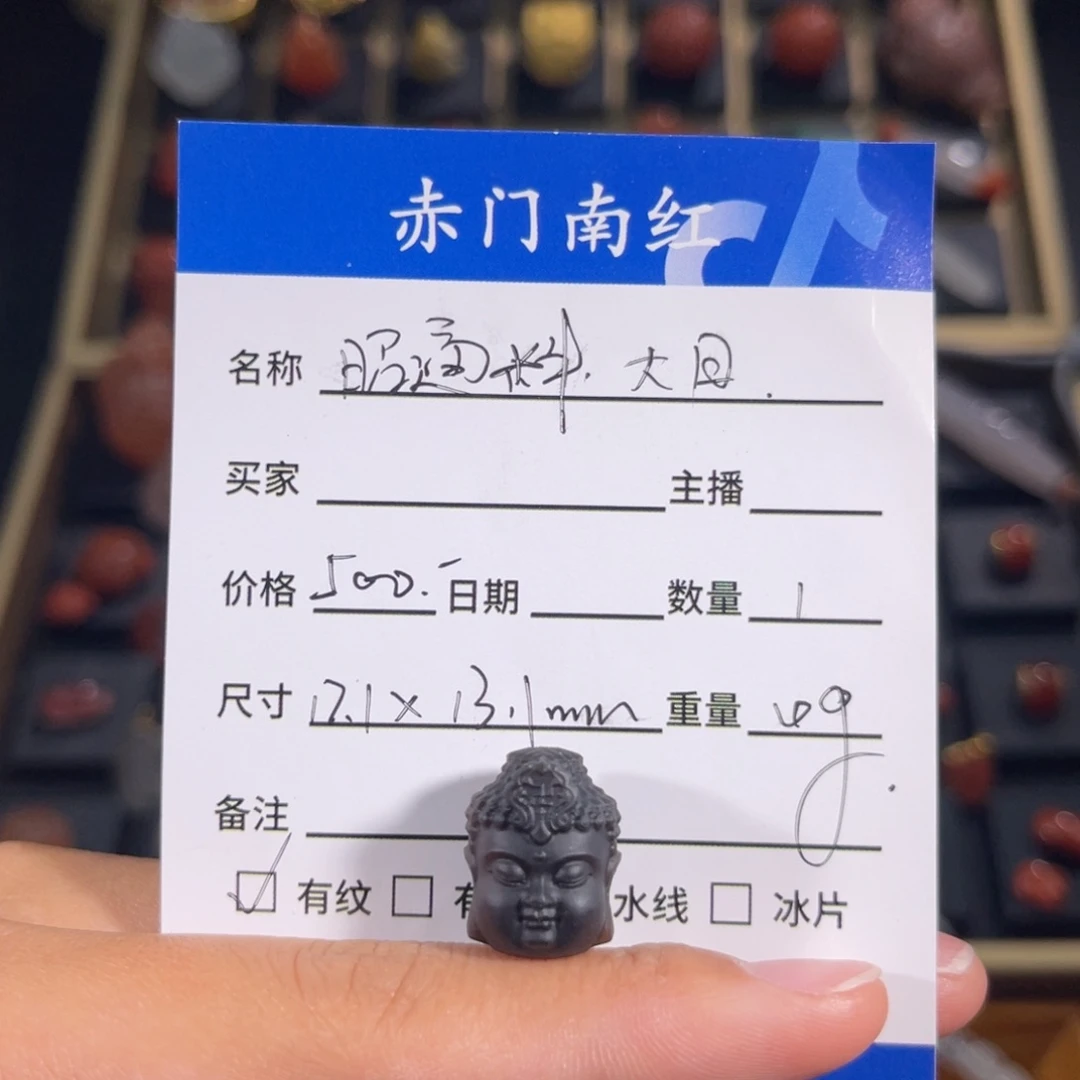 赤门南红
名称 昭通料. 大日.
买家 主播
价格 500.- 日期 数量 1
尺寸 17.1×13.1mm 重量 4g
备注
有纹 有 水线 冰片